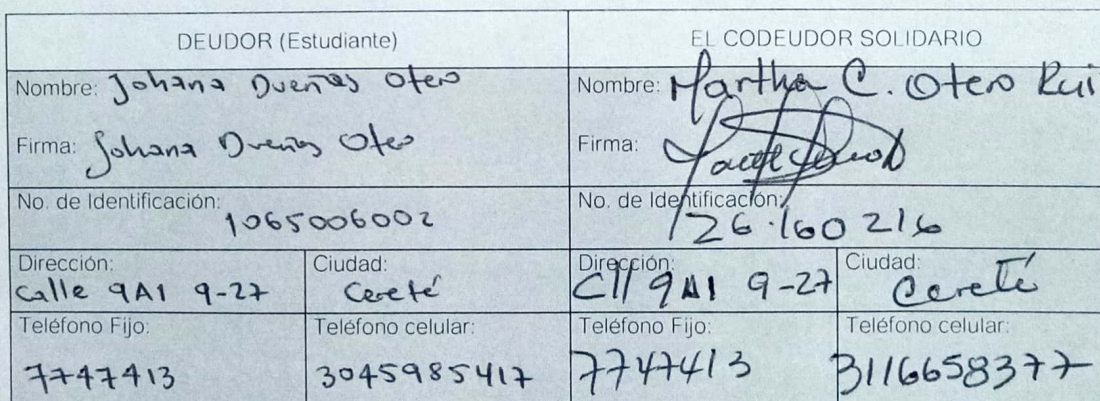 DEUDOR (Estudiante)
EL CODEUDOR SOLIDARIO
Nombre: Johana Dueñas Otero
Nombre: Martha C. Otero Rui
Firma: Johana Dueñas Oteo
Firma:
No. de Identificación: 1065006002
No. de Identificación: 26.160 216
Dirección: Calle 9A1 9-27
Ciudad: Cereté
Dirección: Cll 9A1 9-27
Ciudad: Cereté
Teléfono Fijo: 7747413
Teléfono celular: 3045985417
Teléfono Fijo: 7747413
Teléfono celular: 3116658377